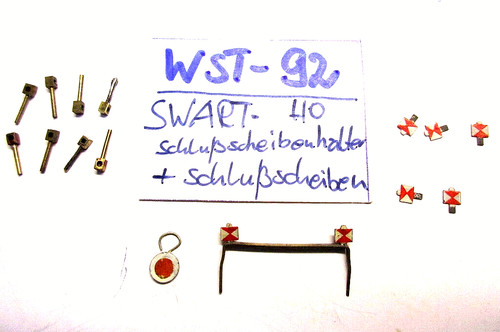 WST-92
SWART- HO
schlußscheibenhalter
+ schlußscheiben